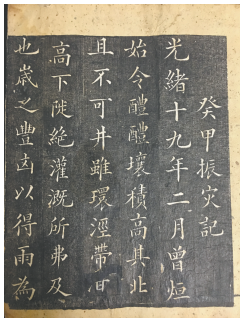 癸甲振灾記
光緒十九年二月曾烜
始令醴醴壤積高其北
且不可井雖環涇帶甘
高下陡絶灌溉所弗及
也歲之豐凶以得雨為